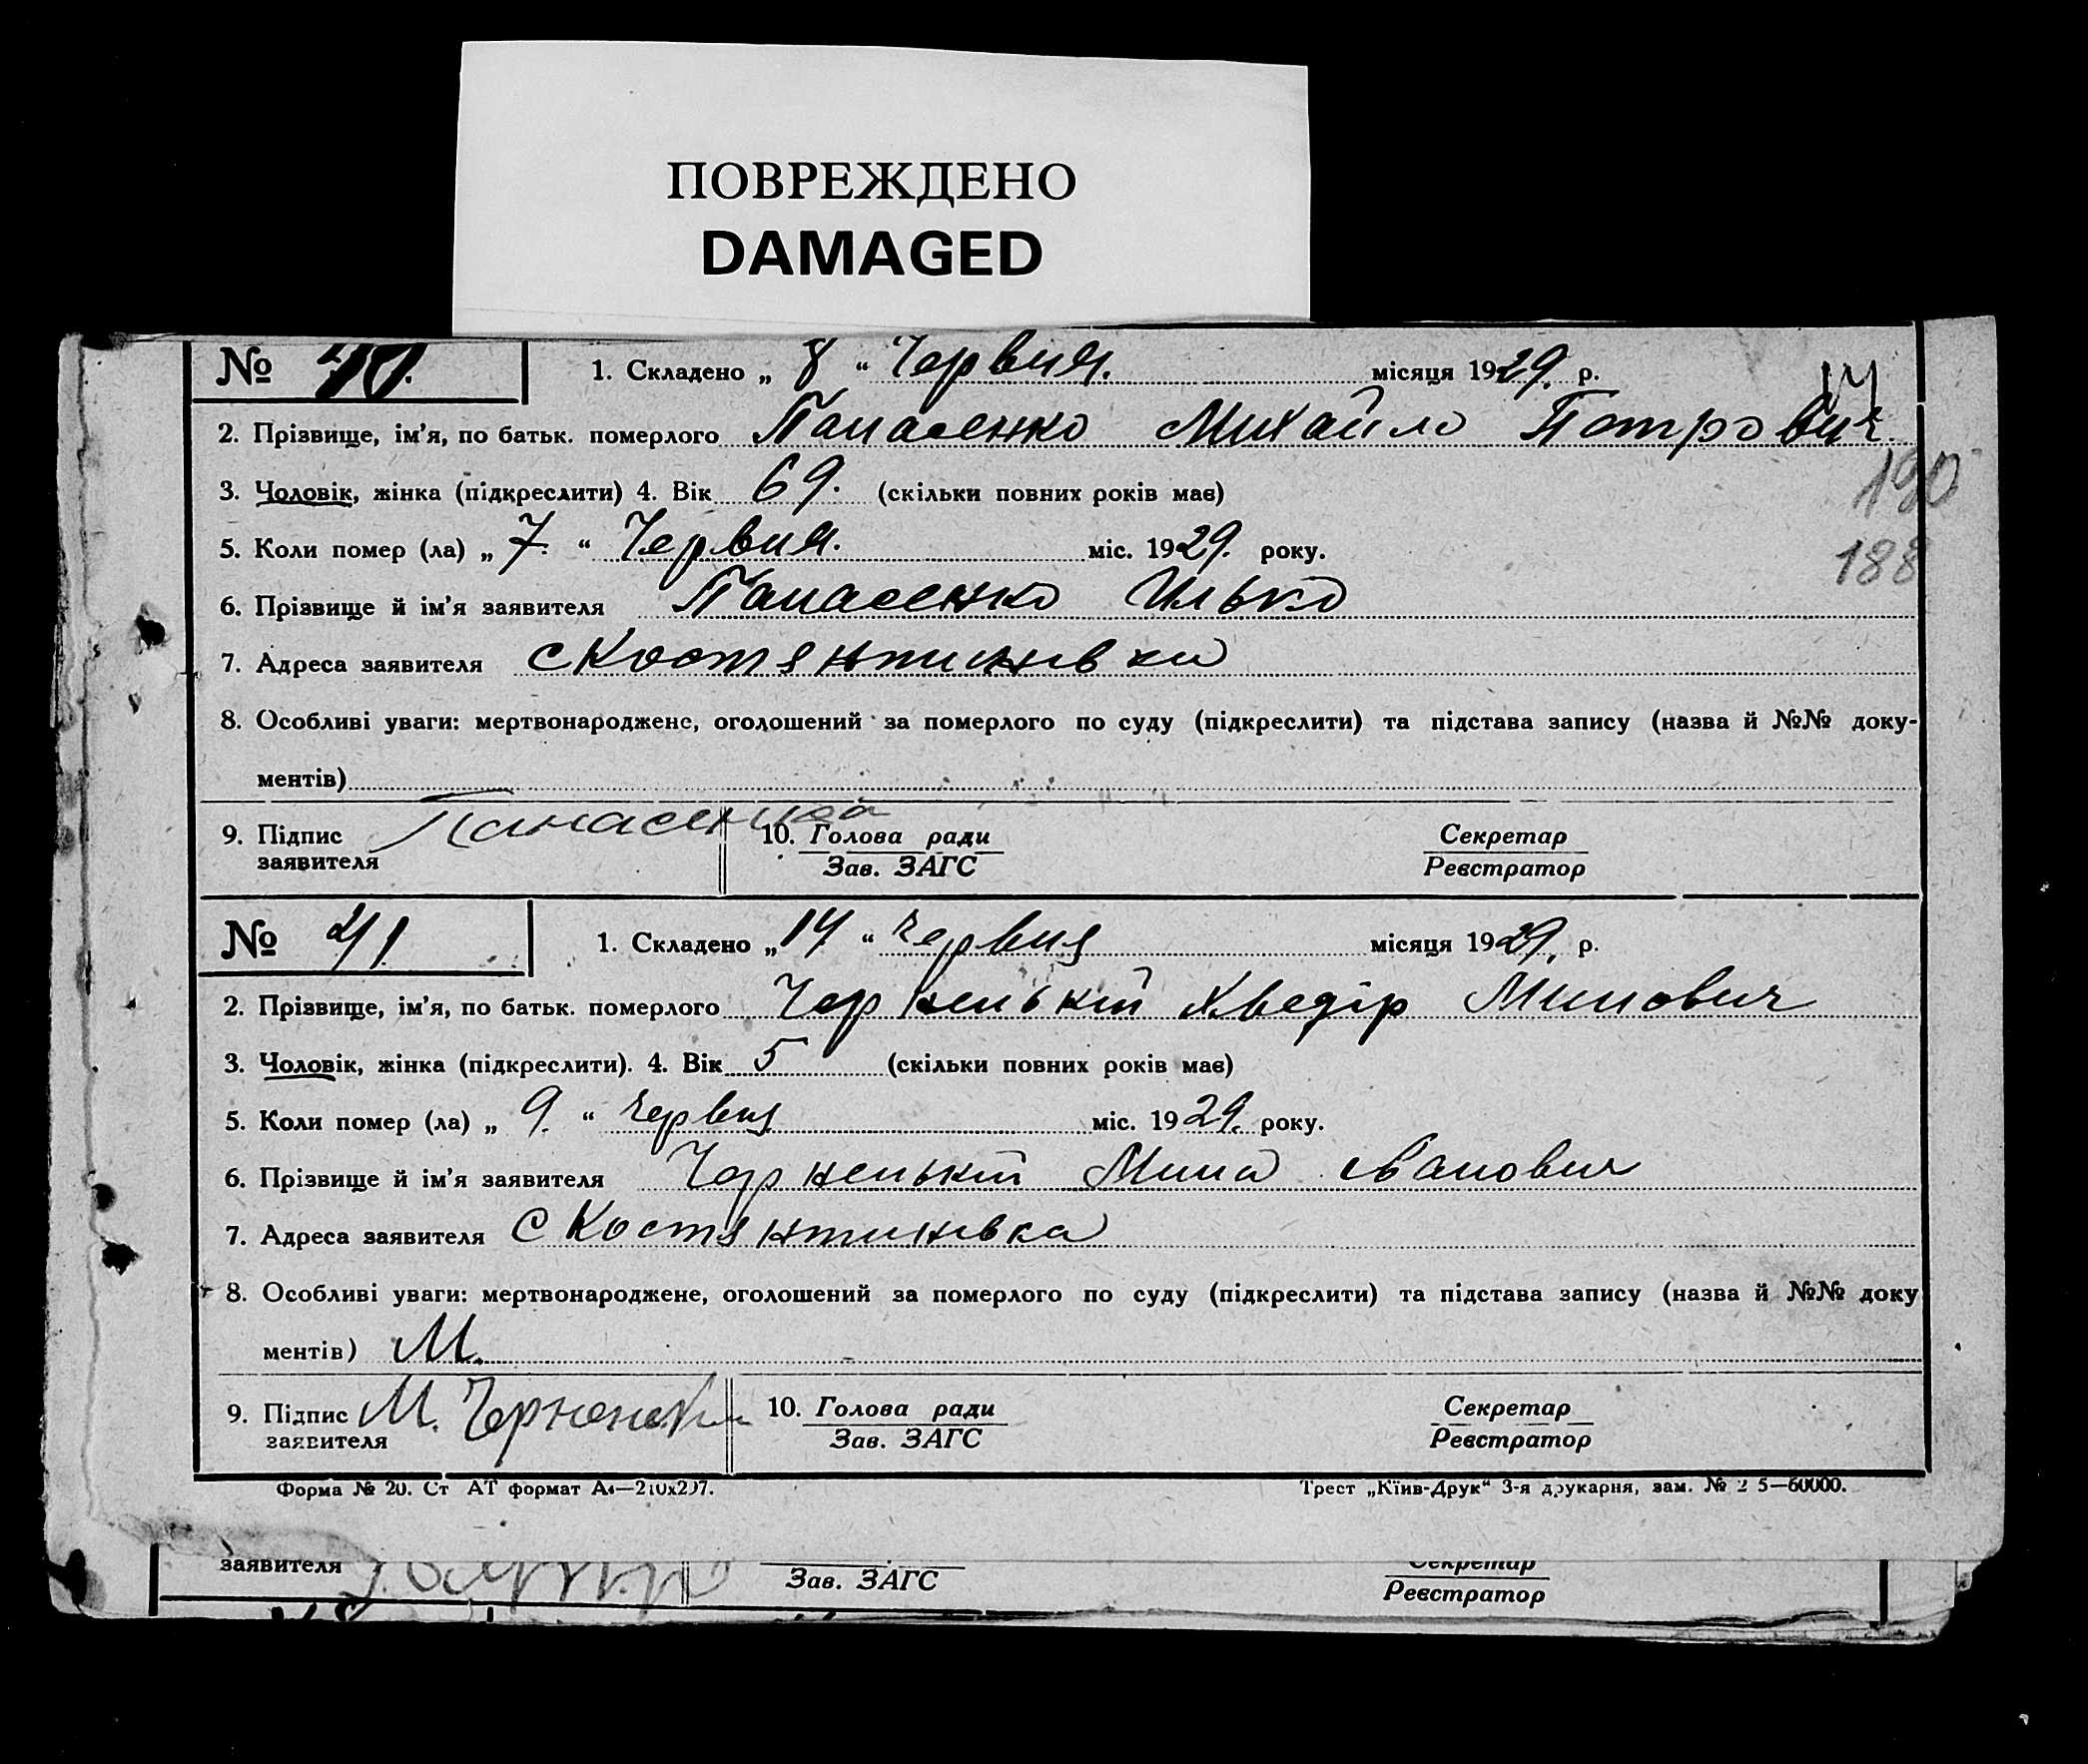 ПОВРЕЖДЕНО
DAMAGED
№ 40. 1. Складено „ 8 “ Червня. місяця 1929. р.
2. Прізвище, ім'я, по батьк. померлого Панасенко Михайло Петрович.
190
3. Чоловік, жінка (підкреслити) 4. Вік 69. (скільки повних років має)
5. Коли помер (ла) „ 7. “ Червня. міс. 1929. року.
188
6. Прізвище й ім'я заявителя Панасенко Илько
7. Адреса заявителя с Костянтинівки
8. Особливі уваги: мертвонароджене, оголошений за померлого по суду (підкреслити) та підстава запису (назва й №№ доку-
ментів)
9. Підпис заявителя Панасенко 10. Голова ради Секретар
Зав. ЗАГС Реєстратор
№ 41. 1. Складено „ 14 “ червня місяця 1929. р.
2. Прізвище, ім'я, по батьк. померлого Чорненький Хведір Минович
3. Чоловік, жінка (підкреслити). 4. Вік 5 (скільки повних років має)
5. Коли помер (ла) „ 9. “ червня міс. 1929. року.
6. Прізвище й ім'я заявителя Чорненький Мина Іванович
7. Адреса заявителя с Костянтинівка
8. Особливі уваги: мертвонароджене, оголошений за померлого по суду (підкреслити) та підстава запису (назва й №№ доку
ментів) М.
9. Підпис заявителя М. 10. Голова ради Секретар
Зав. ЗАГС Реєстратор
Форма № 20. Ст АТ формат А4—210х297. Трест „Київ-Друк“ 3-я друкарня, зам. № 5—60000.
заявителя Секретар
Зав. ЗАГС Реєстратор